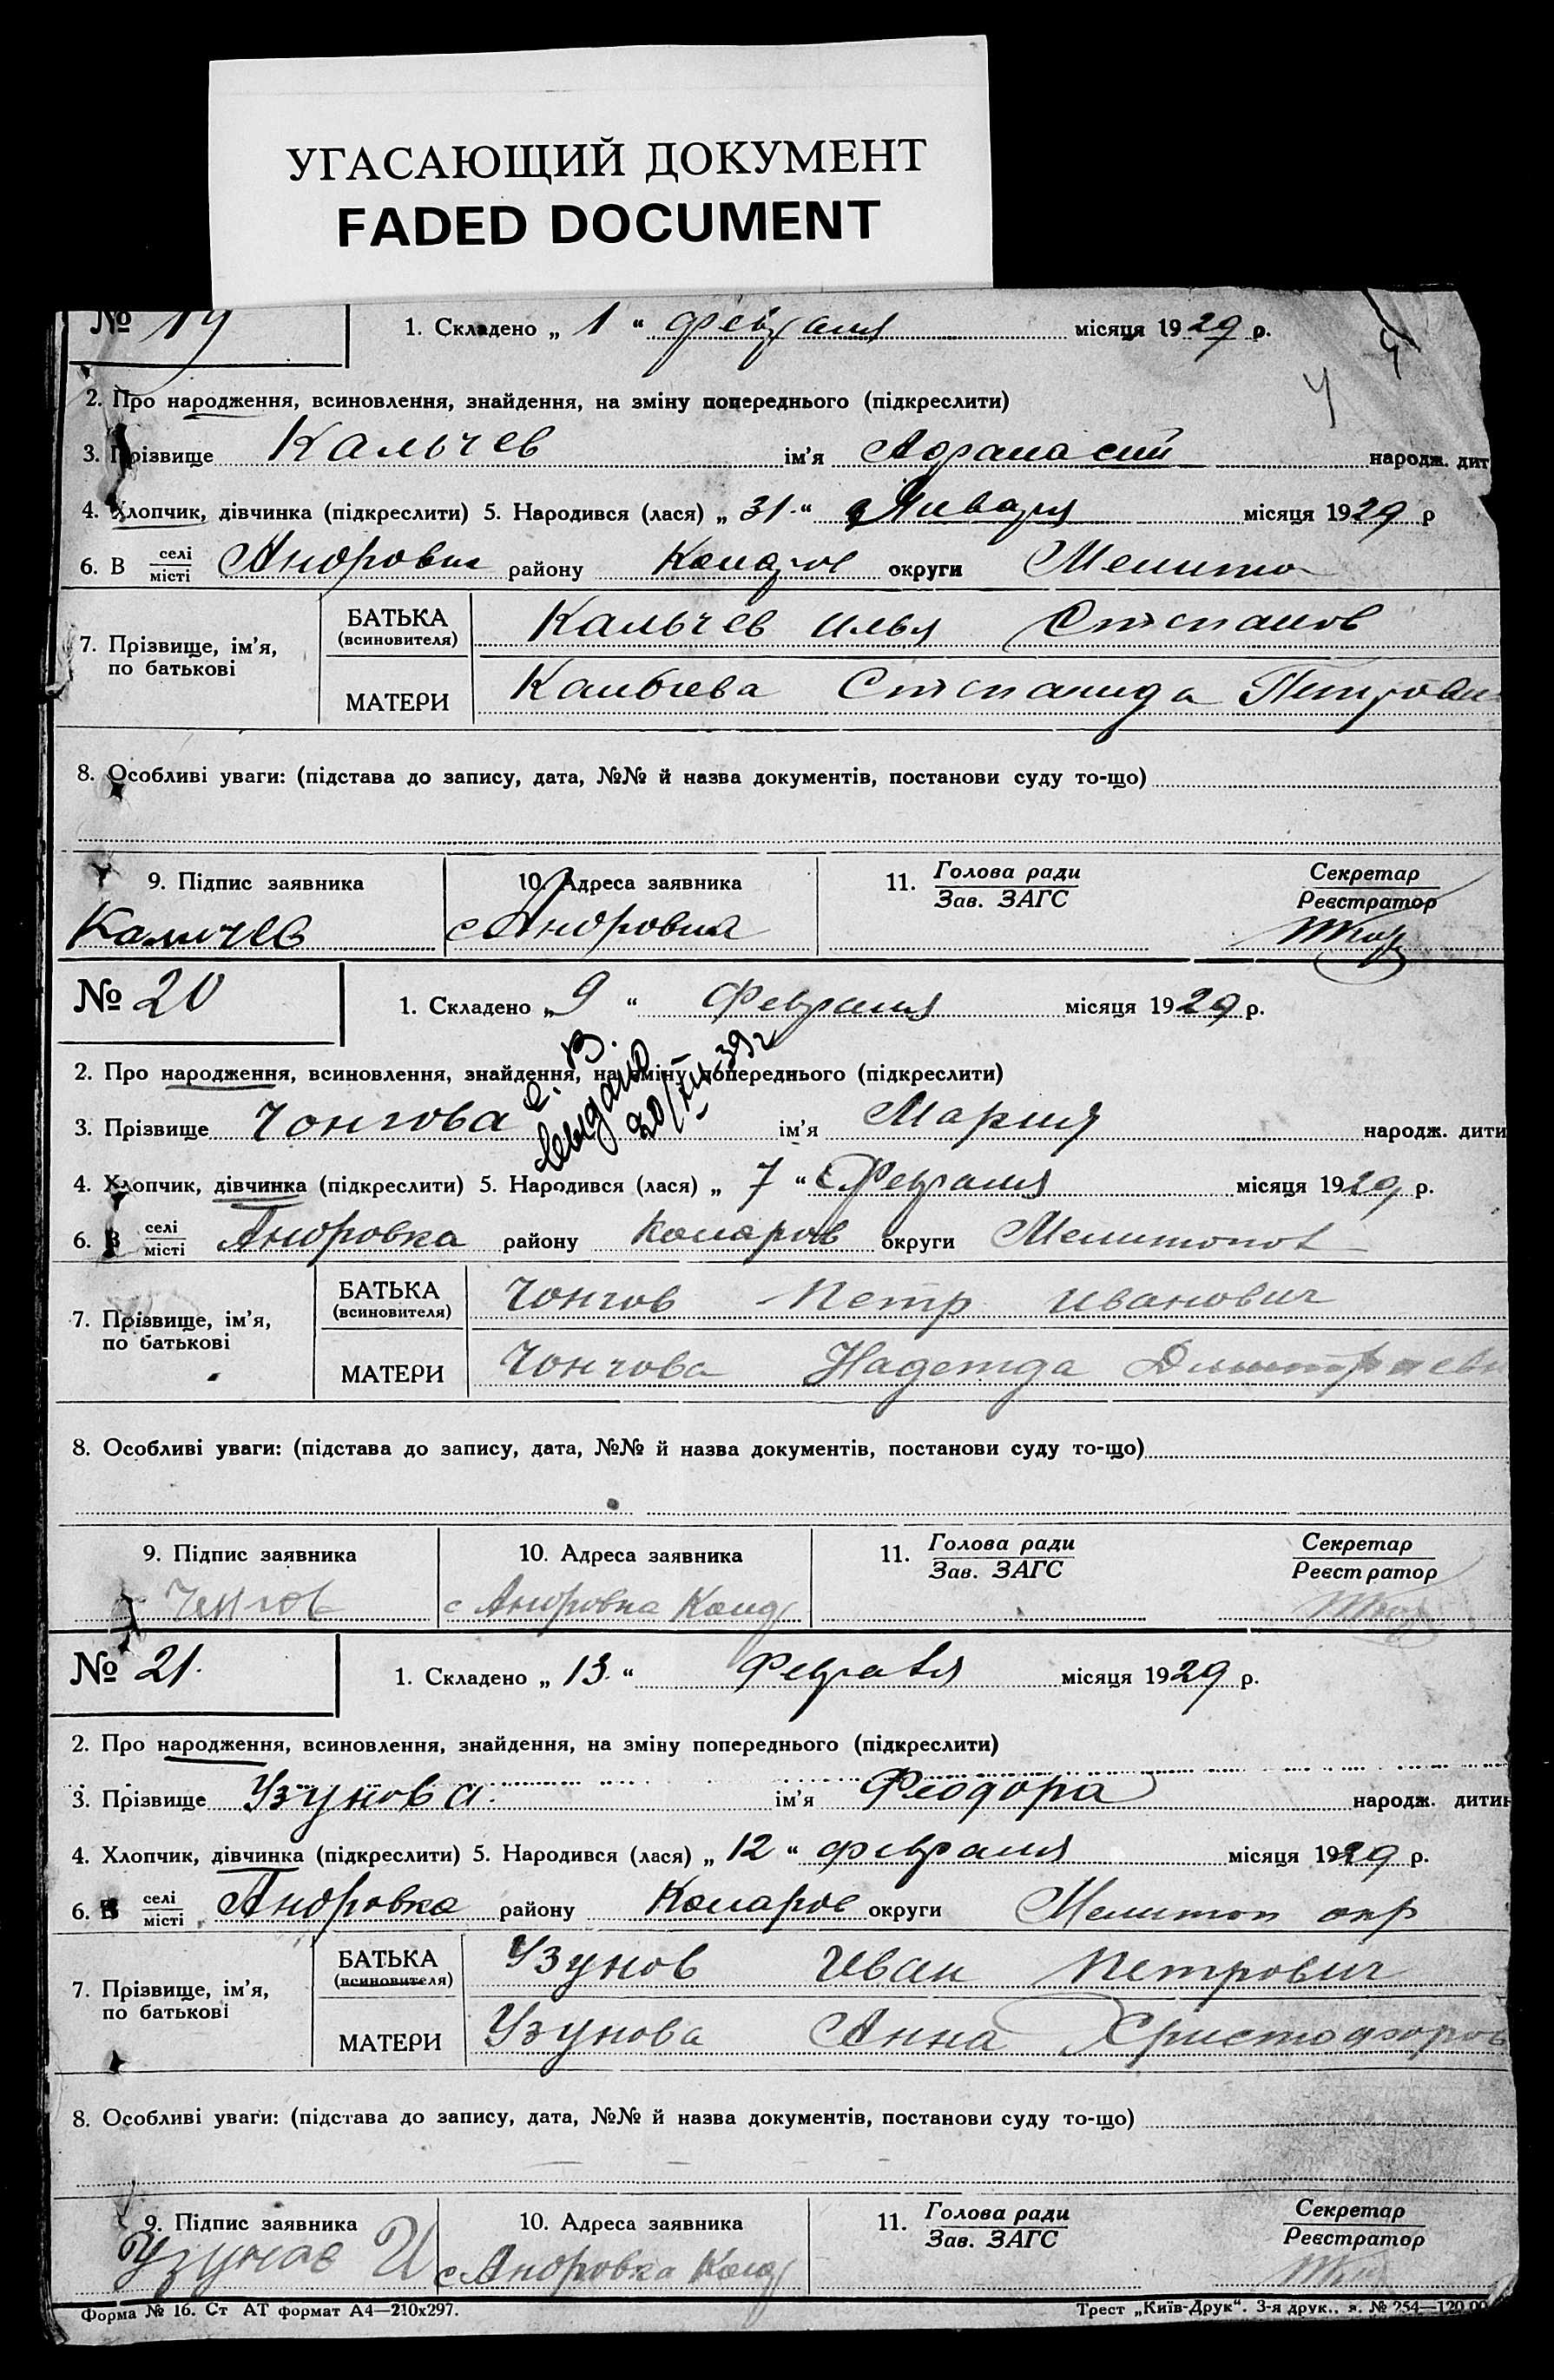 УГАСАЮЩИЙ ДОКУМЕНТ
FADED DOCUMENT
№ 19
1. Складено „ 1 “ февраля місяця 1929 р.
2. Про народження, всиновлення, знайдення, на зміну попереднього (підкреслити)
3. Прізвище Кальчев ім’я Афанасий народж. дит
4. Хлопчик, дівчинка (підкреслити) 5. Народився (лася) „ 31 “ Января місяця 1929 р
6. В селі місті Андровка району Коларов округи Мелито
7. Прізвище, ім’я, по батькові
БАТЬКА (всиновителя) Кальчев Илья Степанов
МАТЕРИ Кальчева Степанида Петровн
8. Особливі уваги: (підстава до запису, дата, №№ й назва документів, постанови суду то-що)
9. Підпис заявника 10. Адреса заявника 11. Голова ради Зав. ЗАГС Секретар Реєстратор
Кальчев с Андровка
№ 20
1. Складено „ 9 “ Февраля місяця 1929 р.
2. Про народження, всиновлення, знайдення, на зміну попереднього (підкреслити)
С. В.
выдано
20/XII-39г
3. Прізвище Чонгова ім’я Мария народж. дити
4. Хлопчик, дівчинка (підкреслити) 5. Народився (лася) „ 7 “ Февраля місяця 1929 р.
6. В селі місті Андровка району Коларов округи Мелитопол
7. Прізвище, ім’я, по батькові
БАТЬКА (всиновителя) Чонгов Петр Иванович
МАТЕРИ Чонгова Надежда Дмитриевн
8. Особливі уваги: (підстава до запису, дата, №№ й назва документів, постанови суду то-що)
9. Підпис заявника 10. Адреса заявника 11. Голова ради Зав. ЗАГС Секретар Реєстратор
Чонгов с Андровка Колар
№ 21.
1. Складено „ 13 “ Февраля місяця 1929 р.
2. Про народження, всиновлення, знайдення, на зміну попереднього (підкреслити)
3. Прізвище Узунова. ім’я Феодора народж. дитин
4. Хлопчик, дівчинка (підкреслити) 5. Народився (лася) „ 12 “ февраля місяця 1929 р.
6. В селі місті Андровка району Коларов округи Мелитоп окр
7. Прізвище, ім’я, по батькові
БАТЬКА (всиновителя) Узунов Иван Петрович
МАТЕРИ Узунова Анна Христофоров
8. Особливі уваги: (підстава до запису, дата, №№ й назва документів, постанови суду то-що)
9. Підпис заявника 10. Адреса заявника 11. Голова ради Зав. ЗАГС Секретар Реєстратор
Узунов И с Андровка Колар
Форма № 16. Ст АТ формат А4—210х297. Трест „Київ-Друк“. 3-я друк.. з. № 254—120.00